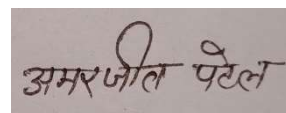 अमरजीत पटेल